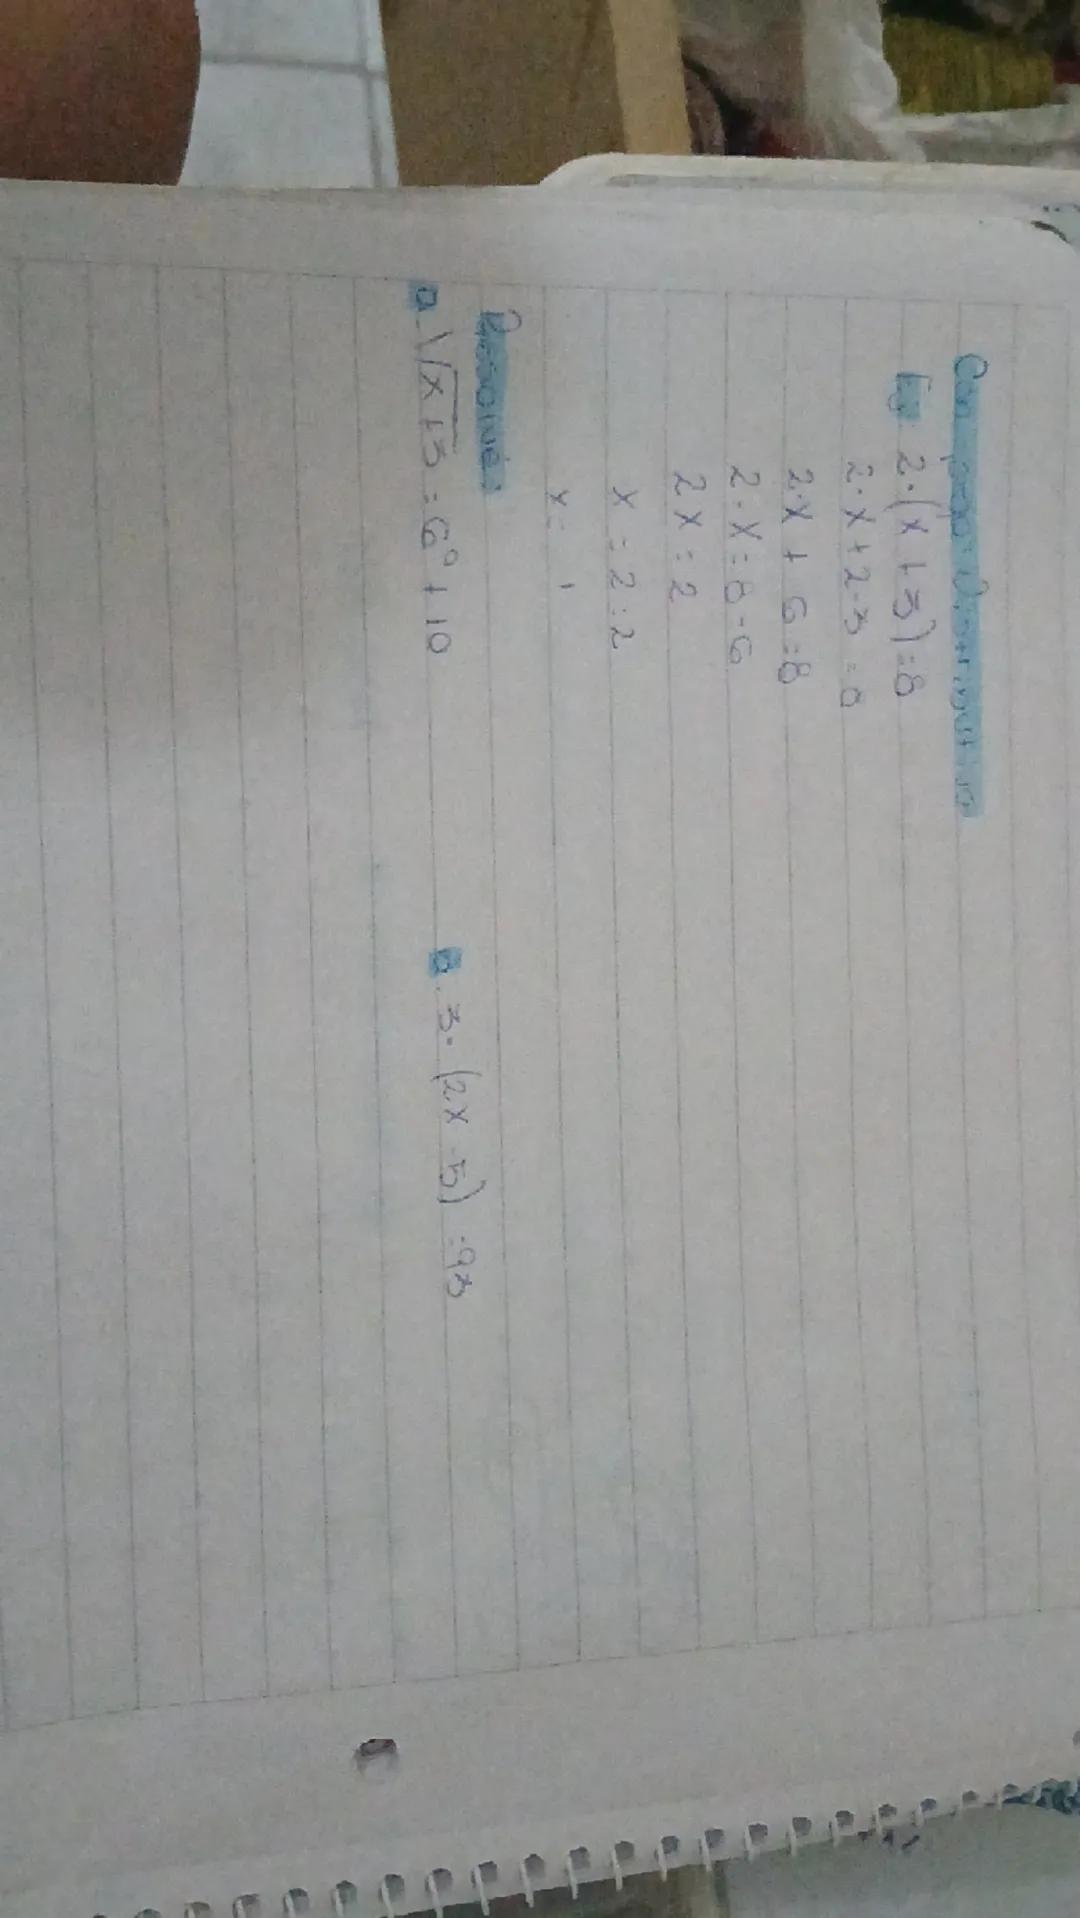 Con propo Distributiva
Ej 2·(x+3)=8
2·x+2·3=8
2·x+6=8
2·x=8-6
2x=2
x=2:2
x=1
Resolvé:
a. √x+3=6⁰+10
b. 3·(2x-5)=93